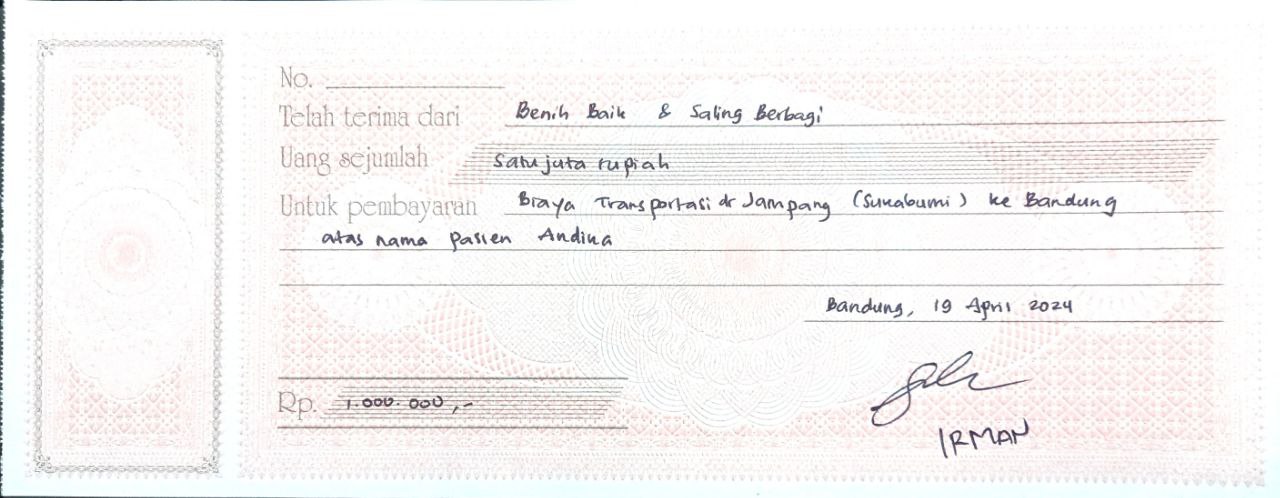 No.
Telah terima dari Benih Baik & Saling Berbagi
Uang sejumlah Satu juta rupiah
Untuk pembayaran Biaya Transportasi dr Jampang (Sukabumi) ke Bandung
atas nama pasien Andina
Bandung, 19 April 2024
Rp. 1.000.000,-
IRMAN